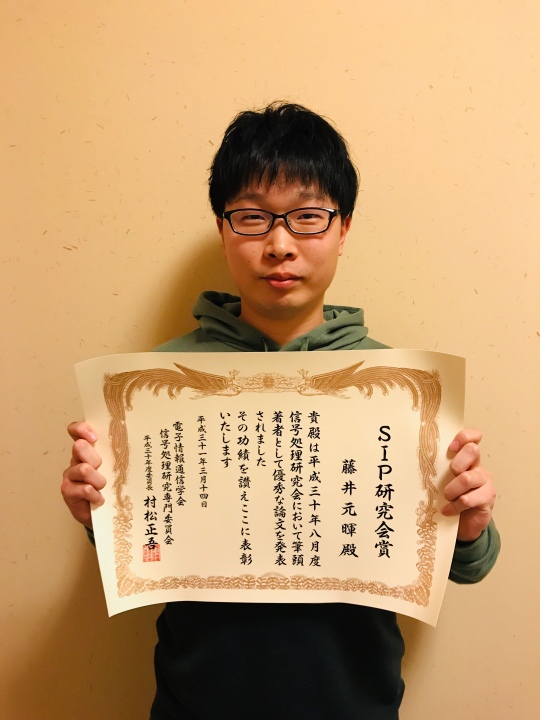 SIP研究会賞
藤井元暉殿
貴殿は平成三十年八月度
信号処理研究会において筆頭
著者として優秀な論文を発表
されました
その功績を讃えここに表彰
いたします
平成三十一年三月十四日
電子情報通信学会
信号処理研究専門委員会
平成三十年度委員長 村松正吾